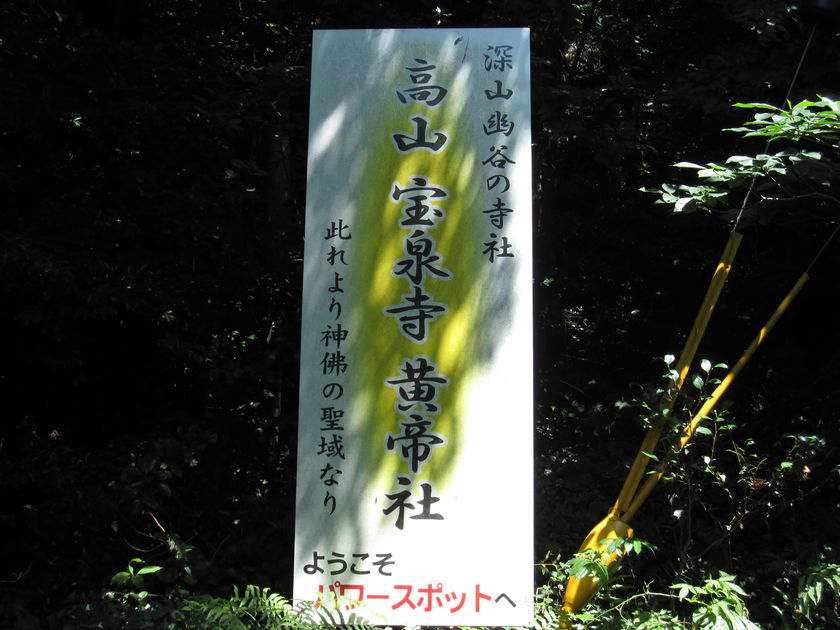 深山幽谷の寺社
高山 宝泉寺 黄帝社
此れより神佛の聖域なり
ようこそ
パワースポットへ